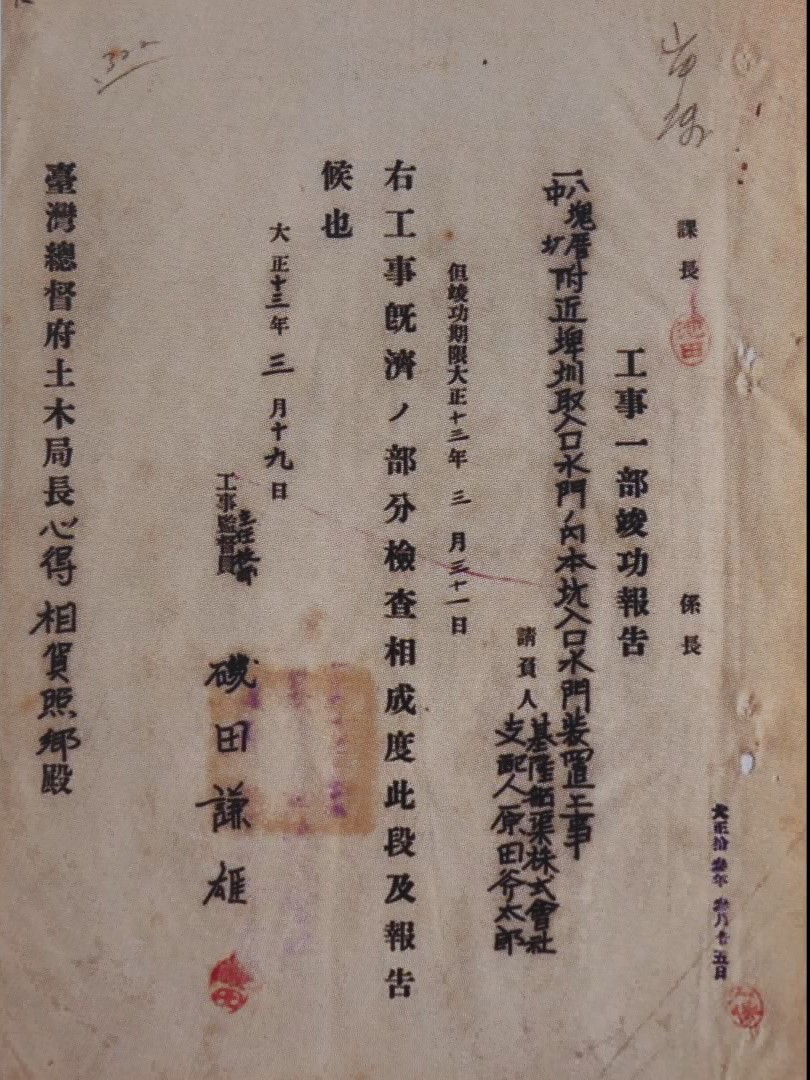 課長 池田 係長
工事一部竣功報告
一八塊厝
中圳附近埤圳取入口水門ノ内本坑入口水門装置工事
請負人 基隆船渠株式會社
支配人原田斧太郎
但竣功期限大正十三年三月三十一日
右工事既濟ノ部分檢查相成度此段及報告
候也
大正十三年三月十九日
工事監督員
主任技師
磯田謙雄
臺灣總督府土木局長心得相賀照郷殿